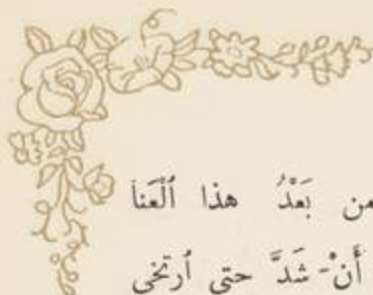 من بَعْدُ هذا ٱلْعَنا
أَنْ- شَدَّ حتى ٱرتخى